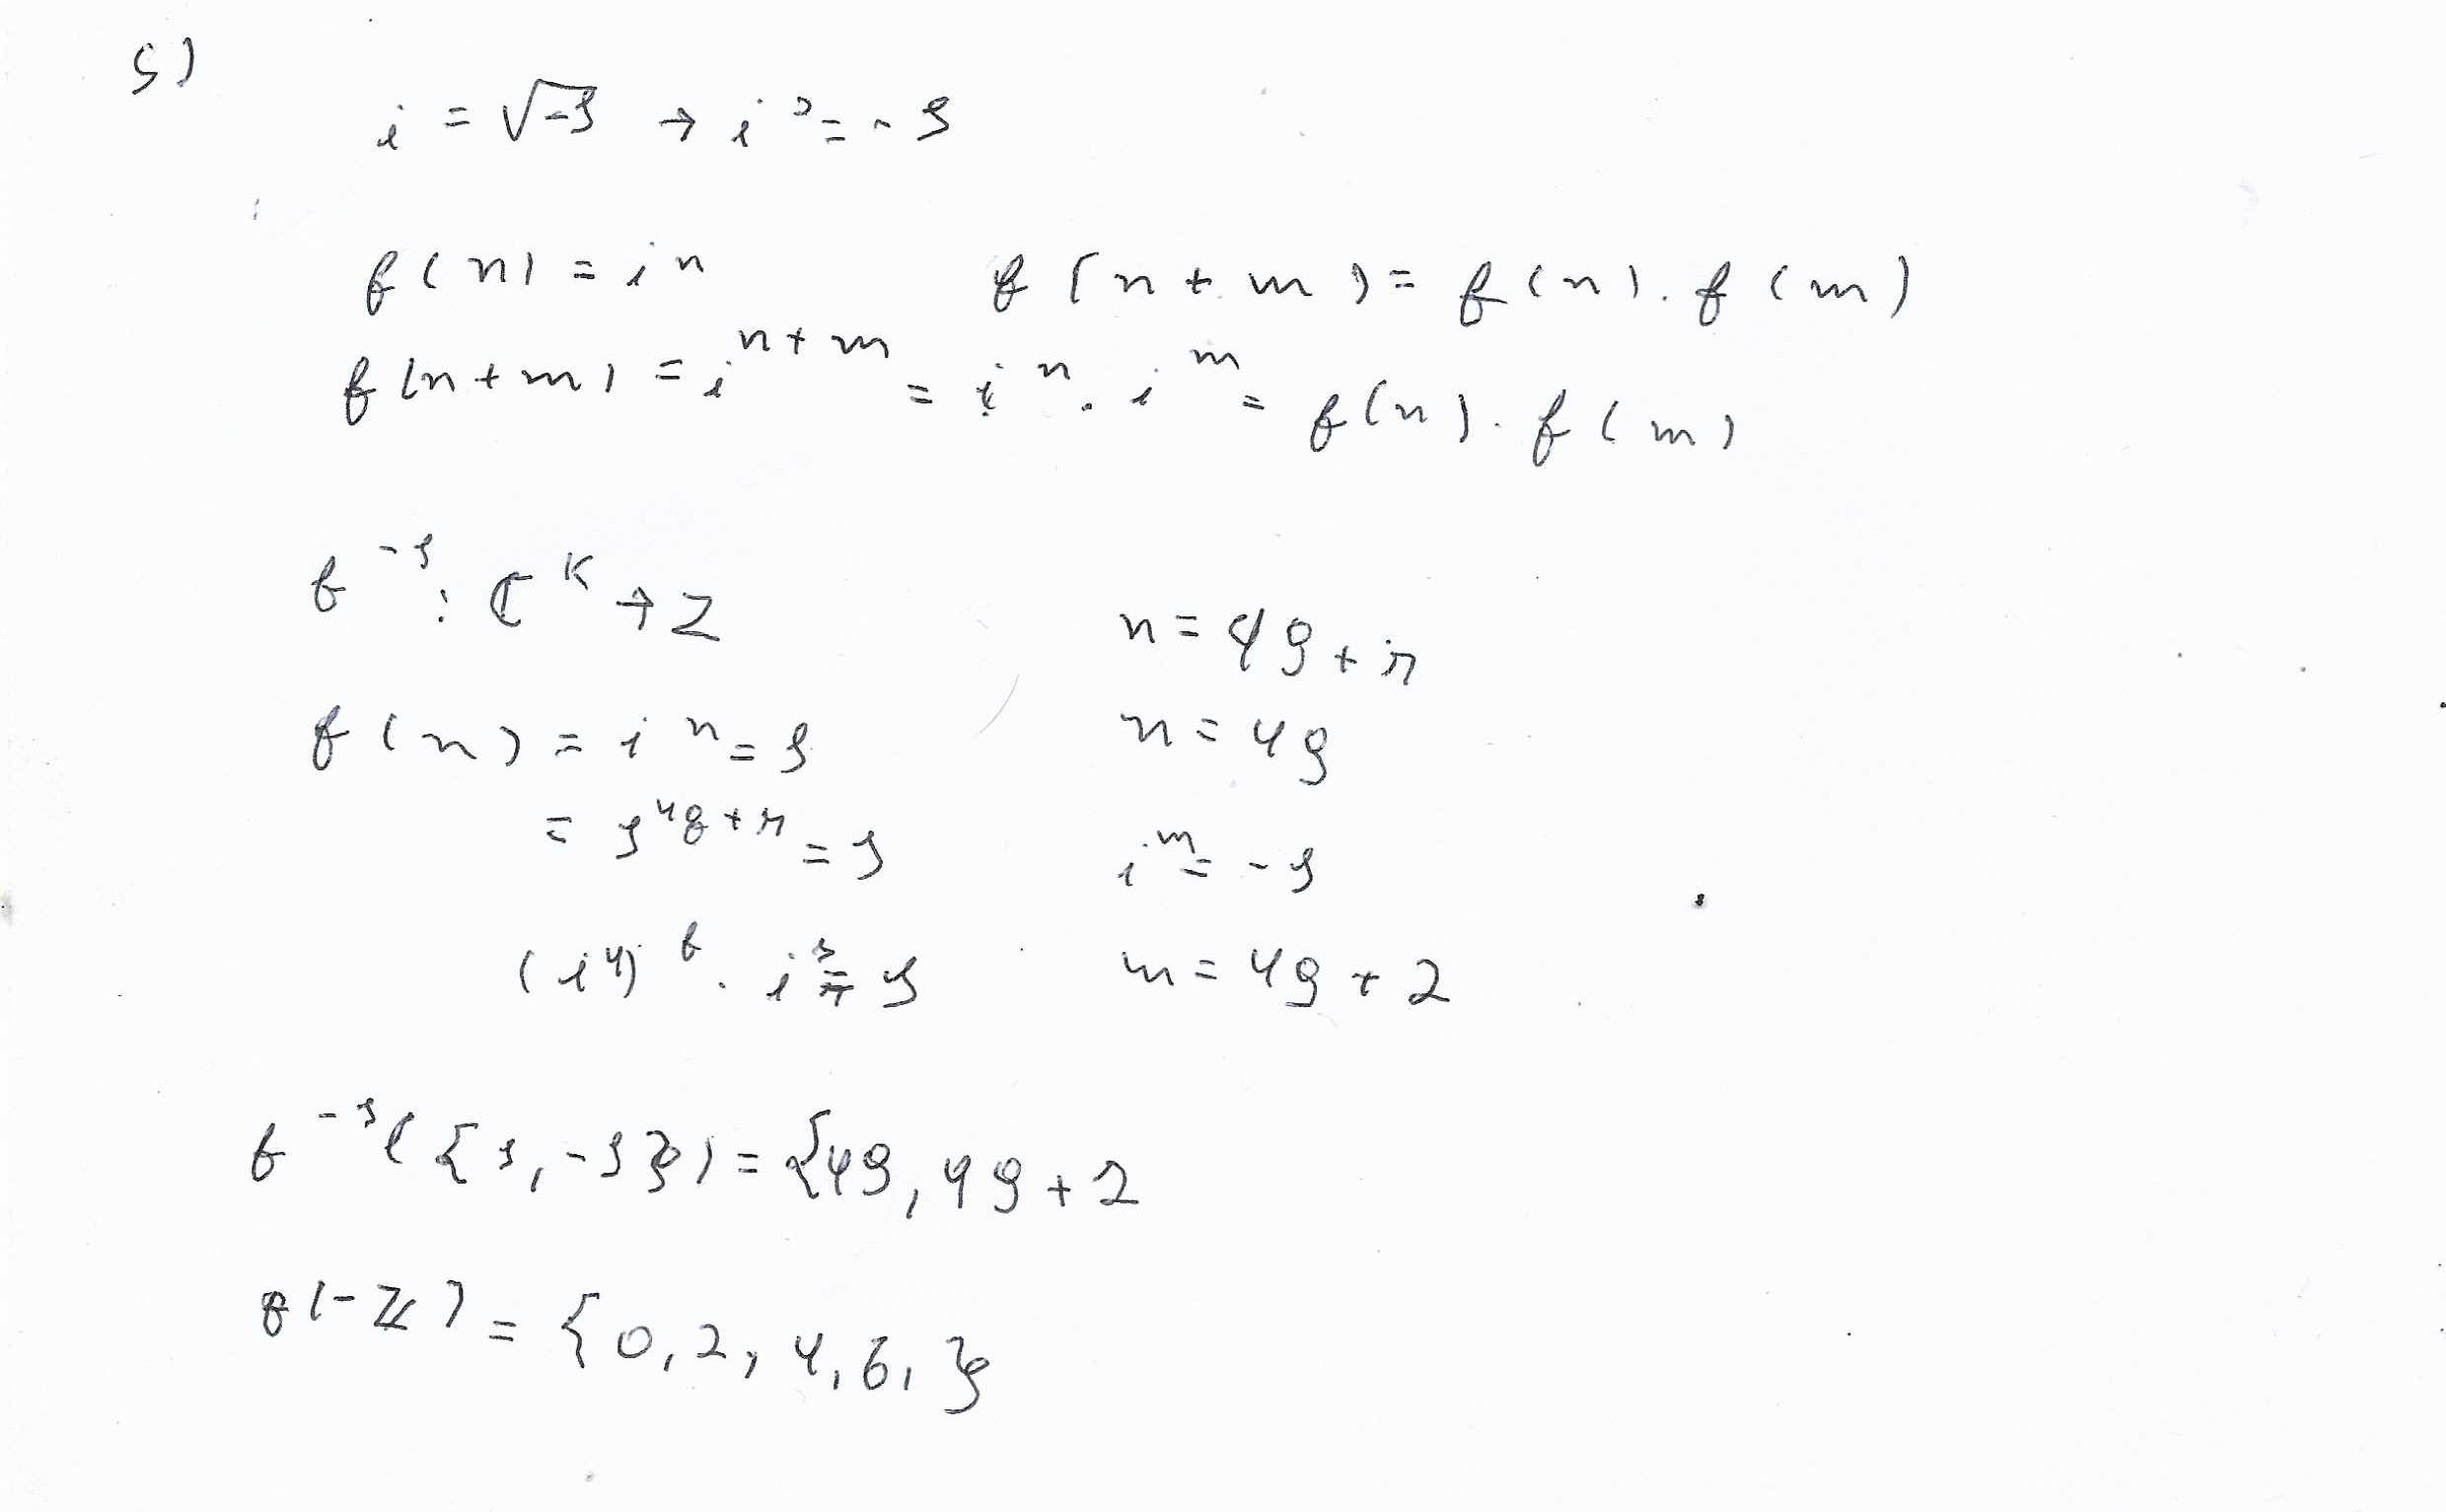 5)
i = √-1 → i² = -1
f(n) = iⁿ f(n+m) = f(n).f(m)
f(n+m) = iⁿ⁺ᵐ = iⁿ.iᵐ = f(n).f(m)
f⁻¹: ℂᴷ → Z n = 4q + r
f(n) = iⁿ = 1 n = 4q
= 1^(4q+r) = 1 iᵐ = -1
(i⁴) . i = 1 m = 4q + 2
f⁻¹({1,-1}) = {4q, 4q+2
f(-ℤ) = {0,2,4,6,}